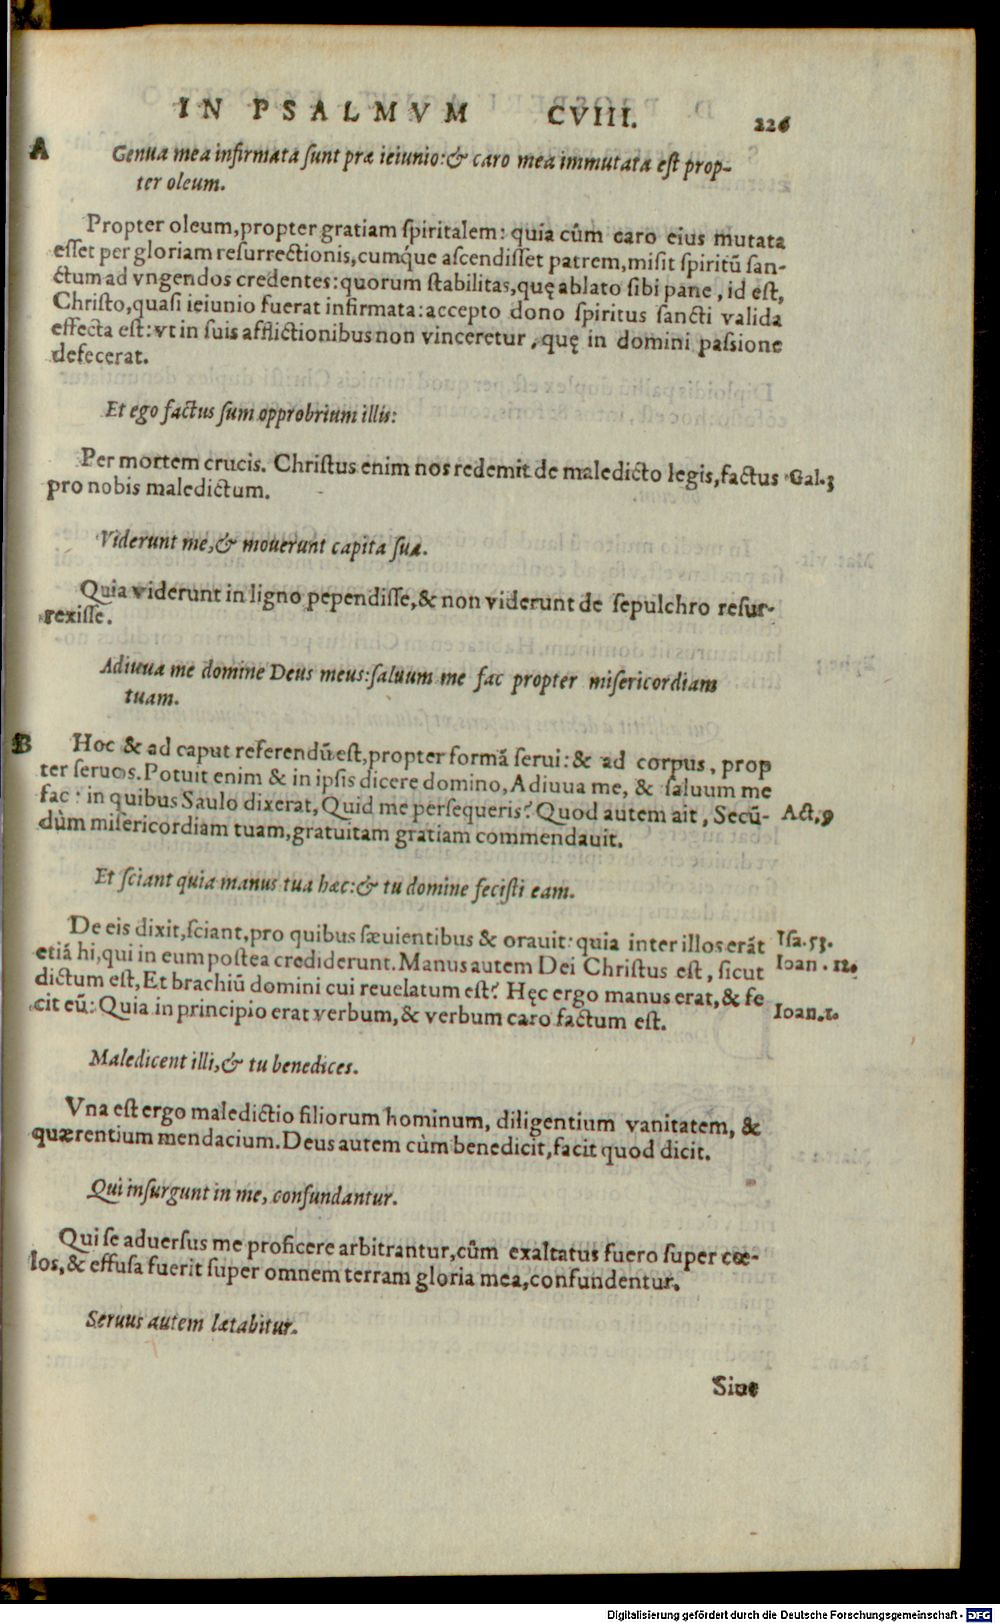 IN PSALMVM CVIII. 226
A Genua mea infirmata sunt præ ieiunio: & caro mea immutata est prop-
ter oleum.
Propter oleum, propter gratiam spiritalem: quia cûm caro eius mutata
esset per gloriam resurrectionis, cumque ascendisset patrem, misit spiritũ san-
ctum ad vngendos credentes: quorum stabilitas, quę ablato sibi pane, id est,
Christo, quasi ieiunio fuerat infirmata: accepto dono spiritus sancti valida
effecta est: vt in suis afflictionibus non vinceretur, quę in domini passione
defecerat.
Et ego factus sum opprobrium illis:
Per mortem crucis. Christus enim nos redemit de maledicto legis, factus Gal. 3
pro nobis maledictum.
Viderunt me, & mouerunt capita sua.
Quia viderunt in ligno pependisse, & non viderunt de sepulchro resur-
rexisse.
Adiuua me domine Deus meus: saluum me fac propter misericordiam
tuam.
B Hoc & ad caput referendũ est, propter formã serui: & ad corpus, prop
ter seruos. Potuit enim & in ipsis dicere domino, Adiuua me, & saluum me
fac: in quibus Saulo dixerat, Quid me persequeris? Quod autem ait, Secũ- Act. 9
dùm misericordiam tuam, gratuitam gratiam commendauit.
Et sciant quia manus tua hæc: & tu domine fecisti eam.
De eis dixit, sciant, pro quibus sæuientibus & orauit: quia inter illos erãt Isa. 53.
etiã hi, qui in eum postea crediderunt. Manus autem Dei Christus est, sicut Ioan. 12.
dictum est, Et brachiũ domini cui reuelatum est? Hęc ergo manus erat, & fe
cit eũ: Quia in principio erat verbum, & verbum caro factum est. Ioan. 1.
Maledicent illi, & tu benedices.
Vna est ergo maledictio filiorum hominum, diligentium vanitatem, &
quærentium mendacium. Deus autem cùm benedicit, facit quod dicit.
Qui insurgunt in me, confundantur.
Qui se aduersus me proficere arbitrantur, cûm exaltatus fuero super cœ-
los, & effusa fuerit super omnem terram gloria mea, confundentur.
Seruus autem lætabitur.
Siue
Digitalisierung gefördert durch die Deutsche Forschungsgemeinschaft - DFG